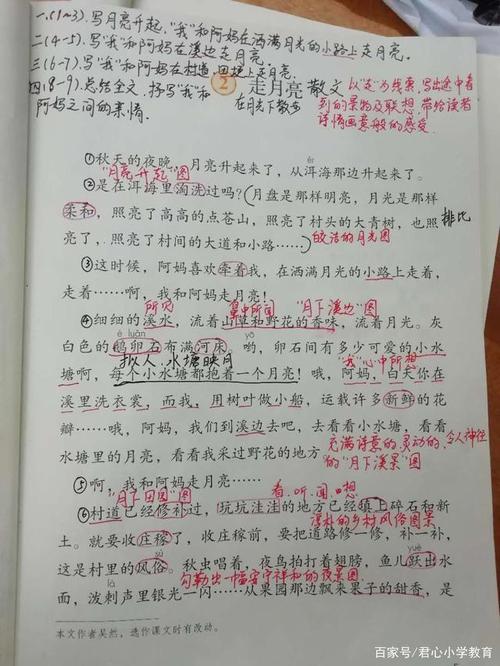 一.(1~3).写月亮升起,"我"和阿妈在洒满月光的小路上走月亮。
二.(4-5).写"我"和阿妈在溪边走月亮。
三.(6-7).写"我"和阿妈在村道、田埂上走月亮。
四.(8-9).总结全文,抒写"我"和
阿妈之间的亲情。
② 走月亮 散文
在月光下散步
以"走"为线索,写出途中看
到的景物及联想,带给读者
诗情画意般的感受。
①秋天的夜晚,月亮升起来了,从洱海那边升起来了。
"月亮升起"图
②是在洱海里淘洗过吗?月盘是那样明亮,月光是那样
柔和,照亮了高高的点苍山,照亮了村头的大青树,也照
排比
亮了,照亮了村间的大道和小路……
皎洁的月光图
③这时候,阿妈喜欢牵着我,在洒满月光的小路上走着,
走着……啊,我和阿妈走月亮!
所见 集中所闻 "月下溪边"图
④细细的溪水,流着山草和野花的香味,流着月光。灰
é luǎn
白色的鹅卵石布满河床。哟,卵石间有多少可爱的小水
拟人.水塘映月 "我"心中所想
塘啊,每个小水塘都抱着一个月亮!哦,阿妈,白天你在
溪里洗衣裳,而我,用树叶做小船,运载许多新鲜的花
瓣……哦,阿妈,我们到溪边去吧,去看看小水塘,看看
充满诗意的、灵动的、令人神往
水塘里的月亮,看看我采过野花的地方。
的"月下溪景"图
⑤啊,我和阿妈走月亮……
"月下田园"图 看、听、闻、想
⑥村道已经修补过,坑坑洼洼的地方已经填上碎石和新
淳朴的乡村风俗图景
土。就要收庄稼了,收庄稼前,要把道路修一修,补一补,
sú yuè
这是村里的风俗。秋虫唱着,夜鸟拍打着翅膀,鱼儿跃出水
勾勒出一幅安宁祥和的夜景图
là
面,泼剌声里银光一闪……从果园那边飘来果子的甜香,是
本文作者吴然,选作课文时有改动。
百家号/君心小学教育